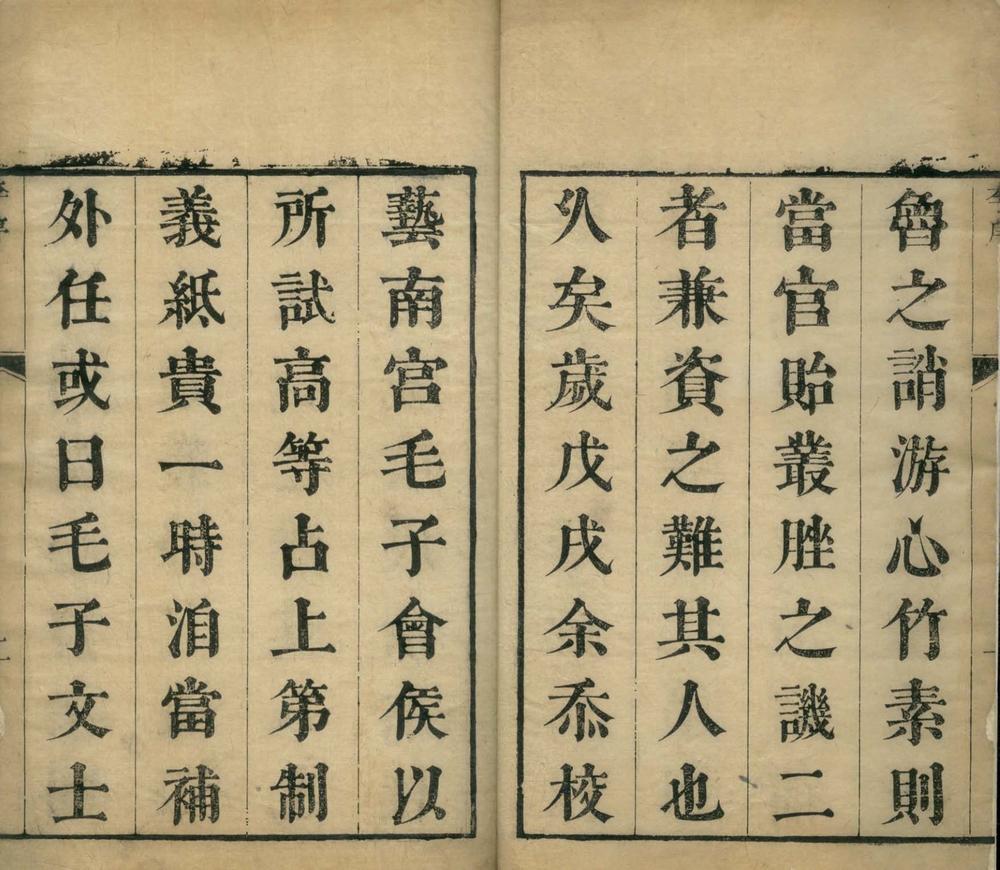 魯之誚游心竹素則
當官貽叢脞之譏二
者兼資之難其人也
久矣歲戊戌余忝校
藝南宮毛子會侯以
所試高等占上第制
義紙貴一時洎當補
外任或曰毛子文士